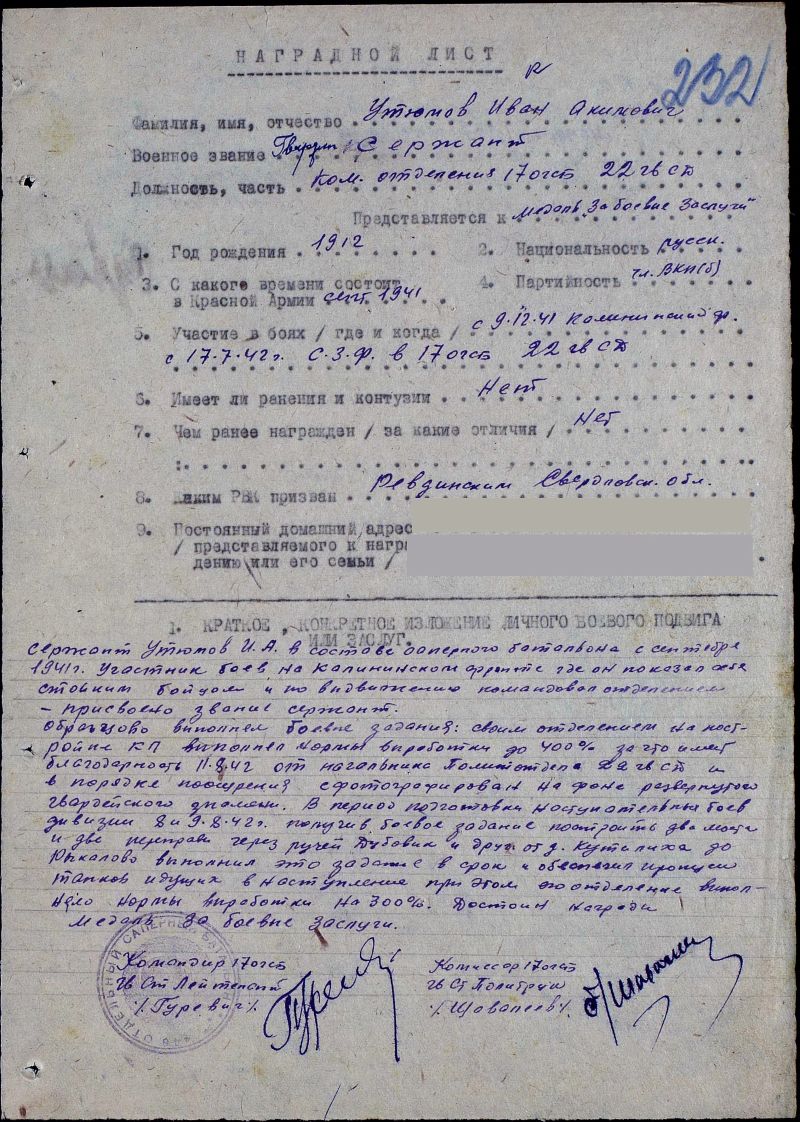 НАГРАДНОЙ ЛИСТ
232
Фамилия, имя, отчество Утюмов Иван Акимович
Военное звание Гвардии Сержант
Должность, часть Ком. отделения 17 огсб 22 гв СД
Представляется к медаль "За боевые Заслуги"
1. Год рождения 1912 2. Национальность русск.
3. С какого времени состоит 4. Партийность чл. ВКП(б)
в Красной Армии сент 1941
5. Участие в боях / где и когда / с 9.12.41 Калининский ф.
с 17.7.42г. С.З.Ф. в 17 огсб 22 гв СД
6. Имеет ли ранения и контузии Нет
7. Чем ранее награжден / за какие отличия / Нет
8. Каким РВК призван Ревдинским Свердловск. обл.
9. Постоянный домашний адрес
/ представляемого к награ
дению или его семьи /
1. КРАТКОЕ, КОНКРЕТНОЕ ИЗЛОЖЕНИЕ ЛИЧНОГО БОЕВОГО ПОДВИГА
ИЛИ ЗАСЛУГ.
Сержант Утюмов И.А. в составе саперного батальона с сентября
1941г. Участник боев на Калининском фронте где он показал себя
стойким бойцом и по выдвижению командовал отделением
- присвоено звание сержант.
Образцово выполнял боевые задания: своим отделением на пост-
ройке КП выполнял нормы выработки до 400% за что имеет
благодарность 11.8.42 от начальника Политотдела 22 гв СД и
в порядке поощрения сфотографирован на фоне развернутого
гвардейского знамени. В период подготовки наступательных боев
дивизии 8 и 9.8.42г. получив боевое задание построить два моста
и две переправы через ручей Дубовик и друг. от д. Куталиха до
Рыкалово выполнил это задание в срок и обеспечил пропуск
танков идущих в наступление при этом его отделение выпол-
няло нормы выработки на 300%. Достоин награды
медаль За боевые Заслуги.
Командир 17 огсб Комиссар 17 огсб
гв Ст Лейтенант гв Ст Политрук
/Гуревич/ /Шавалеев/
ОТДЕЛЬНЫЙ САПЕРНЫЙ